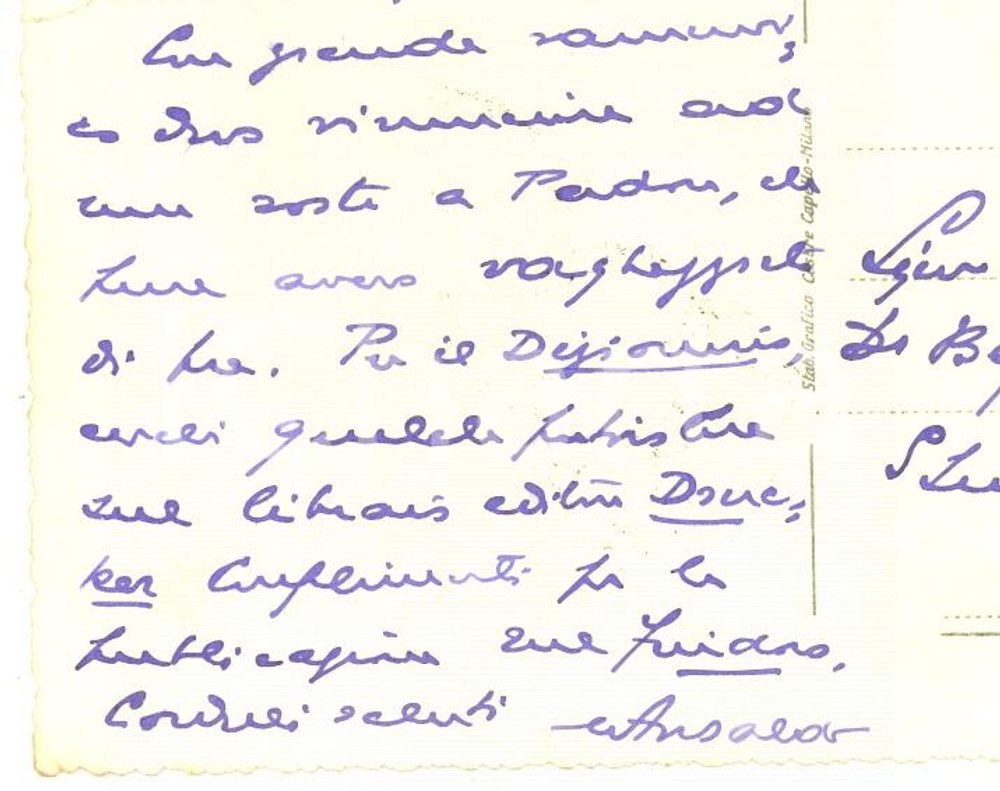 Con grande rammari=
co devo rinunciare ad
una sosta a Padova, che
pure avevo vagheggiato
di fare. Per il Dizionario,
cerchi qualche
sul libraio editore Druc=
ker Complimenti per la
pubblicazione sul
Cordiali saluti Ansaldo
Stab. Grafico Cesare Capello-Milano